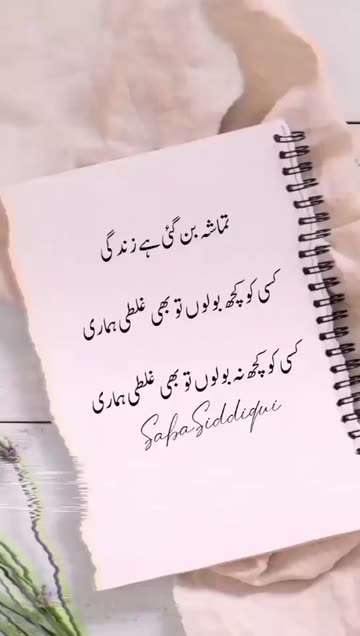 تماشہ بن گئی ہے زندگی
کسی کو کچھ بولوں تو بھی غلطی ہماری
کسی کو کچھ نہ بولوں تو بھی غلطی ہماری
Saba Siddiqui